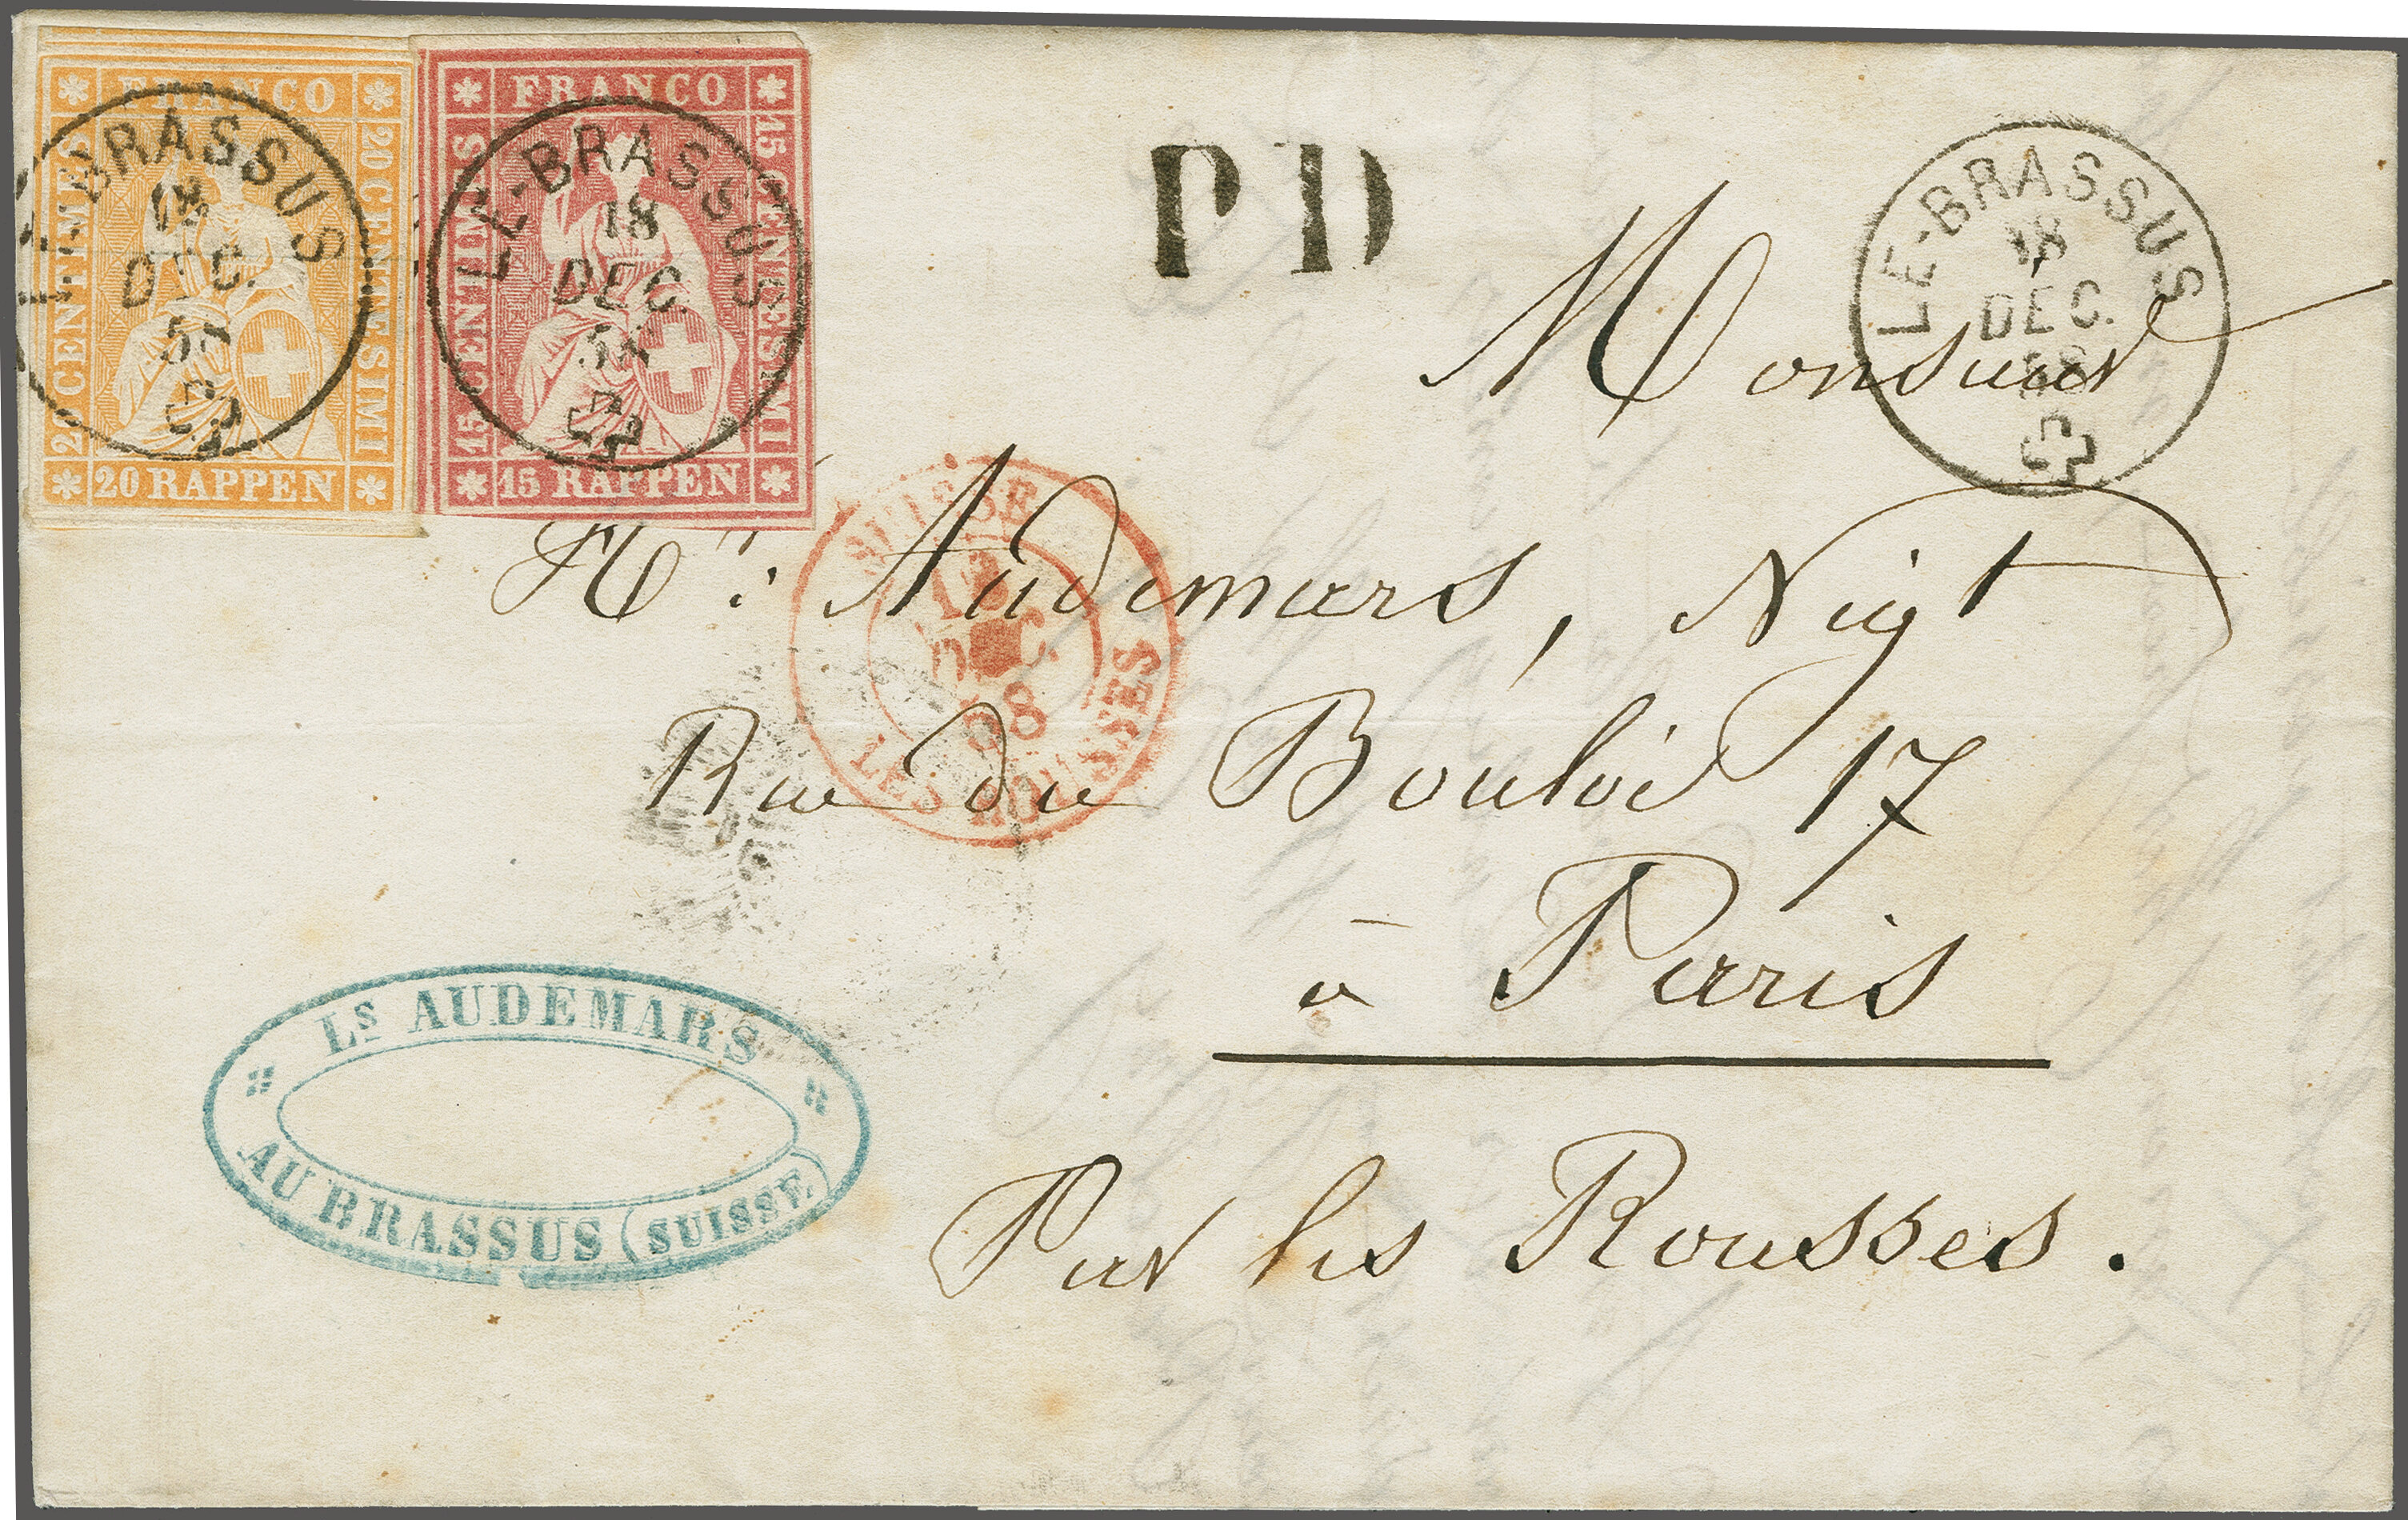 FRANCO
20 CENTIMES
20 CENTESIMI
20 RAPPEN
LE-BRASSUS
18
DEC.
58
FRANCO
15 CENTIMES
15 CENTESIMI
15 RAPPEN
LE-BRASSUS
18
DEC.
58
PD
LE-BRASSUS
18
DEC.
58
Monsieur
SUISSE
DEC.
58
LES ROUSSES
Audemars, Nég.t
Rue du Bouloi 17
à Paris
Par les Rousses.
Ls AUDEMARS
AU BRASSUS (SUISSE)